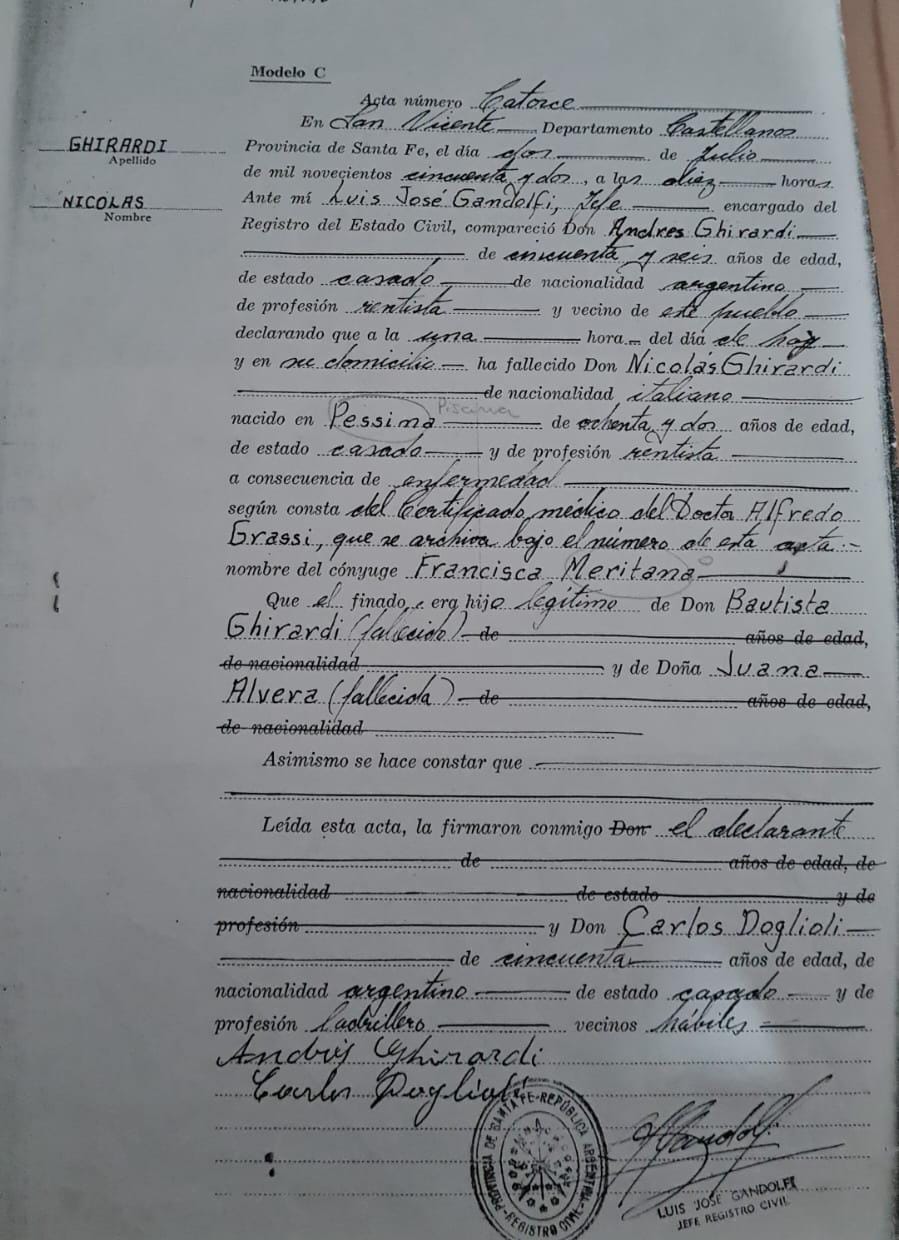 Modelo C
Acta número Catorce
En San Vicente, Departamento Castellanos
GHIRARDI
Apellido
Provincia de Santa Fe, el día dos de Julio
de mil novecientos cincuenta y dos, a las diez horas.
NICOLAS
Nombre
Ante mí Luis José Gandolfi, Jefe encargado del
Registro del Estado Civil, compareció Don Andres Ghirardi
de cincuenta y seis años de edad,
de estado casado de nacionalidad argentino
de profesión rentista y vecino de este pueblo
declarando que a la una hora del día de hoy
y en su domicilio ha fallecido Don Nicolás Ghirardi
de nacionalidad italiano
nacido en Pessima de ochenta y dos años de edad,
de estado casado y de profesión rentista
a consecuencia de enfermedad
según consta del Certificado médico del Doctor Alfredo
Grassi, que se archiva bajo el número de esta acta.-
nombre del cónyuge Francisca Meritana
Que el finado, era hijo legítimo de Don Bautista
Ghirardi (fallecido) de años de edad,
de nacionalidad y de Doña Juana
Alvera (fallecida) de años de edad,
de nacionalidad
Asimismo se hace constar que
Leída esta acta, la firmaron conmigo Don el declarante
de años de edad, de
nacionalidad de estado y de
profesión y Don Carlos Doglioli
de cincuenta años de edad, de
nacionalidad argentino de estado casado y de
profesión ladrillero vecinos hábiles
Andrés Ghirardi
Carlos Doglioli
PROVINCIA DE SANTA FE-REPÚBLICA ARGENTINA-REGISTRO CIVIL
LUIS JOSÉ GANDOLFI
JEFE REGISTRO CIVIL